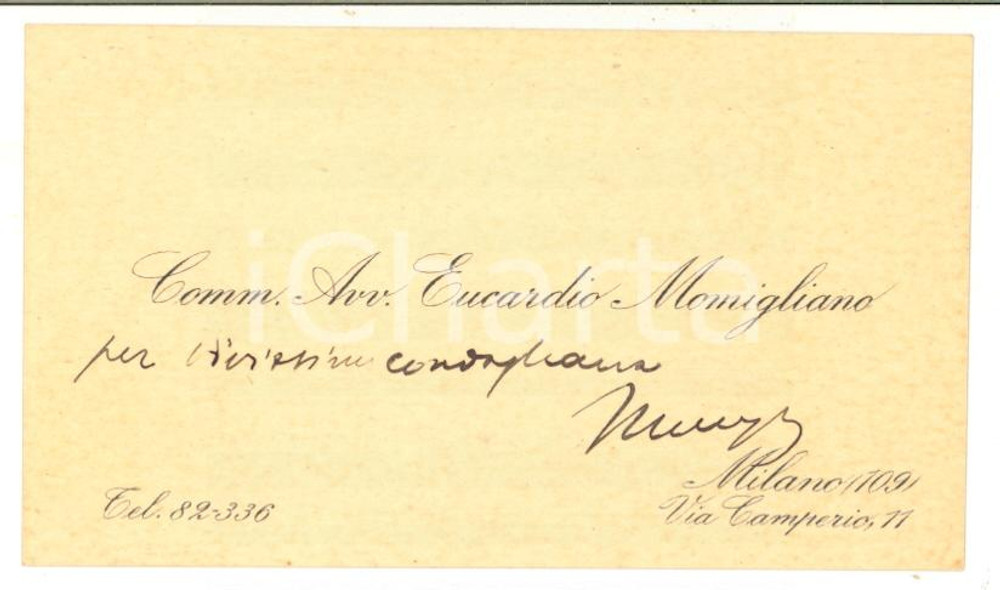 Comm. Avv. Eucardio Momigliano
per vivissime condoglianze
Tel. 82-336
Milano (109)
Via Camperio, 11
iCharta